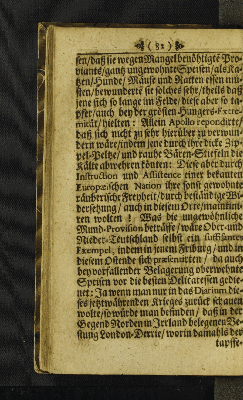 ( 32 )
sen/ daß sie wegen Mangel benöhtigte Pro-
viants/ gantz ungewohnte Speisen/ als Ka-
tzen/ Hunde/ Mäuse und Ratten essen mü-
sten/ bewunderte sie solches sehr/ theils daß
jene sich so lange im Felde/ diese aber so ta-
pfer/ auch bey der grösten Hungers-Extre-
mität/ hielten: Allein Apollo repondirte/
daß sich nicht zu sehr hierüber zu verwun-
dern wäre/ indem jene durch ihre dicke Zip-
pel-Peltze/ und rauhe Bären-Stiefeln die
Kälte abwehren könten: Diese aber durch
Instruction und Assistence einer bekanten
Europæischen Nation ihre sonst gewohnte
räuberische Freyheit/ durch beständige Wi-
dersetzung/ auch in diesem Ort/ mainteni-
ren wolten: Was die ungewöhnliche
Mund-Provision beträffe/ wäre Ober- und
Nieder-Teutschland selbst ein suffisantes
Exempel, indem in jenem Freiburg/ und in
diesem Ostende sich præsentirten/ da auch
bey vorfallender Belagerung oberwehnte
Speisen vor die besten Delicatessen gedie-
net: Ja wenn man nur in das Diarium die-
ses jetztwährenden Krieges zurück schauen
wolte/ so würde man befinden/ daß in der
Gegend Norden in Irrland belegenen Ve-
stung London-Derrie/ worin damahls der
tapffe-